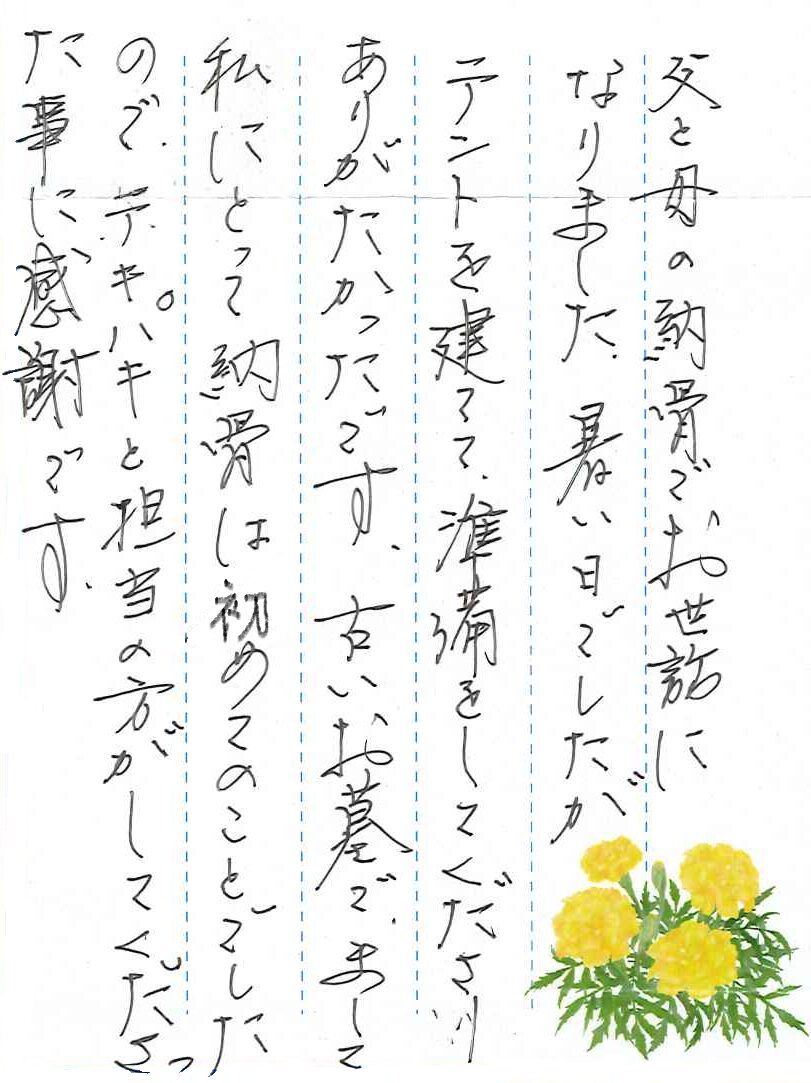 父と母の納骨でお世話に
なりました。暑い日でしたが
テントを建てて、準備をしてくださり
ありがたかったです。古いお墓で、まして
私にとって納骨は初めてのことでした
ので、テキパキと担当の方がしてくださっ
た事に、感謝です。